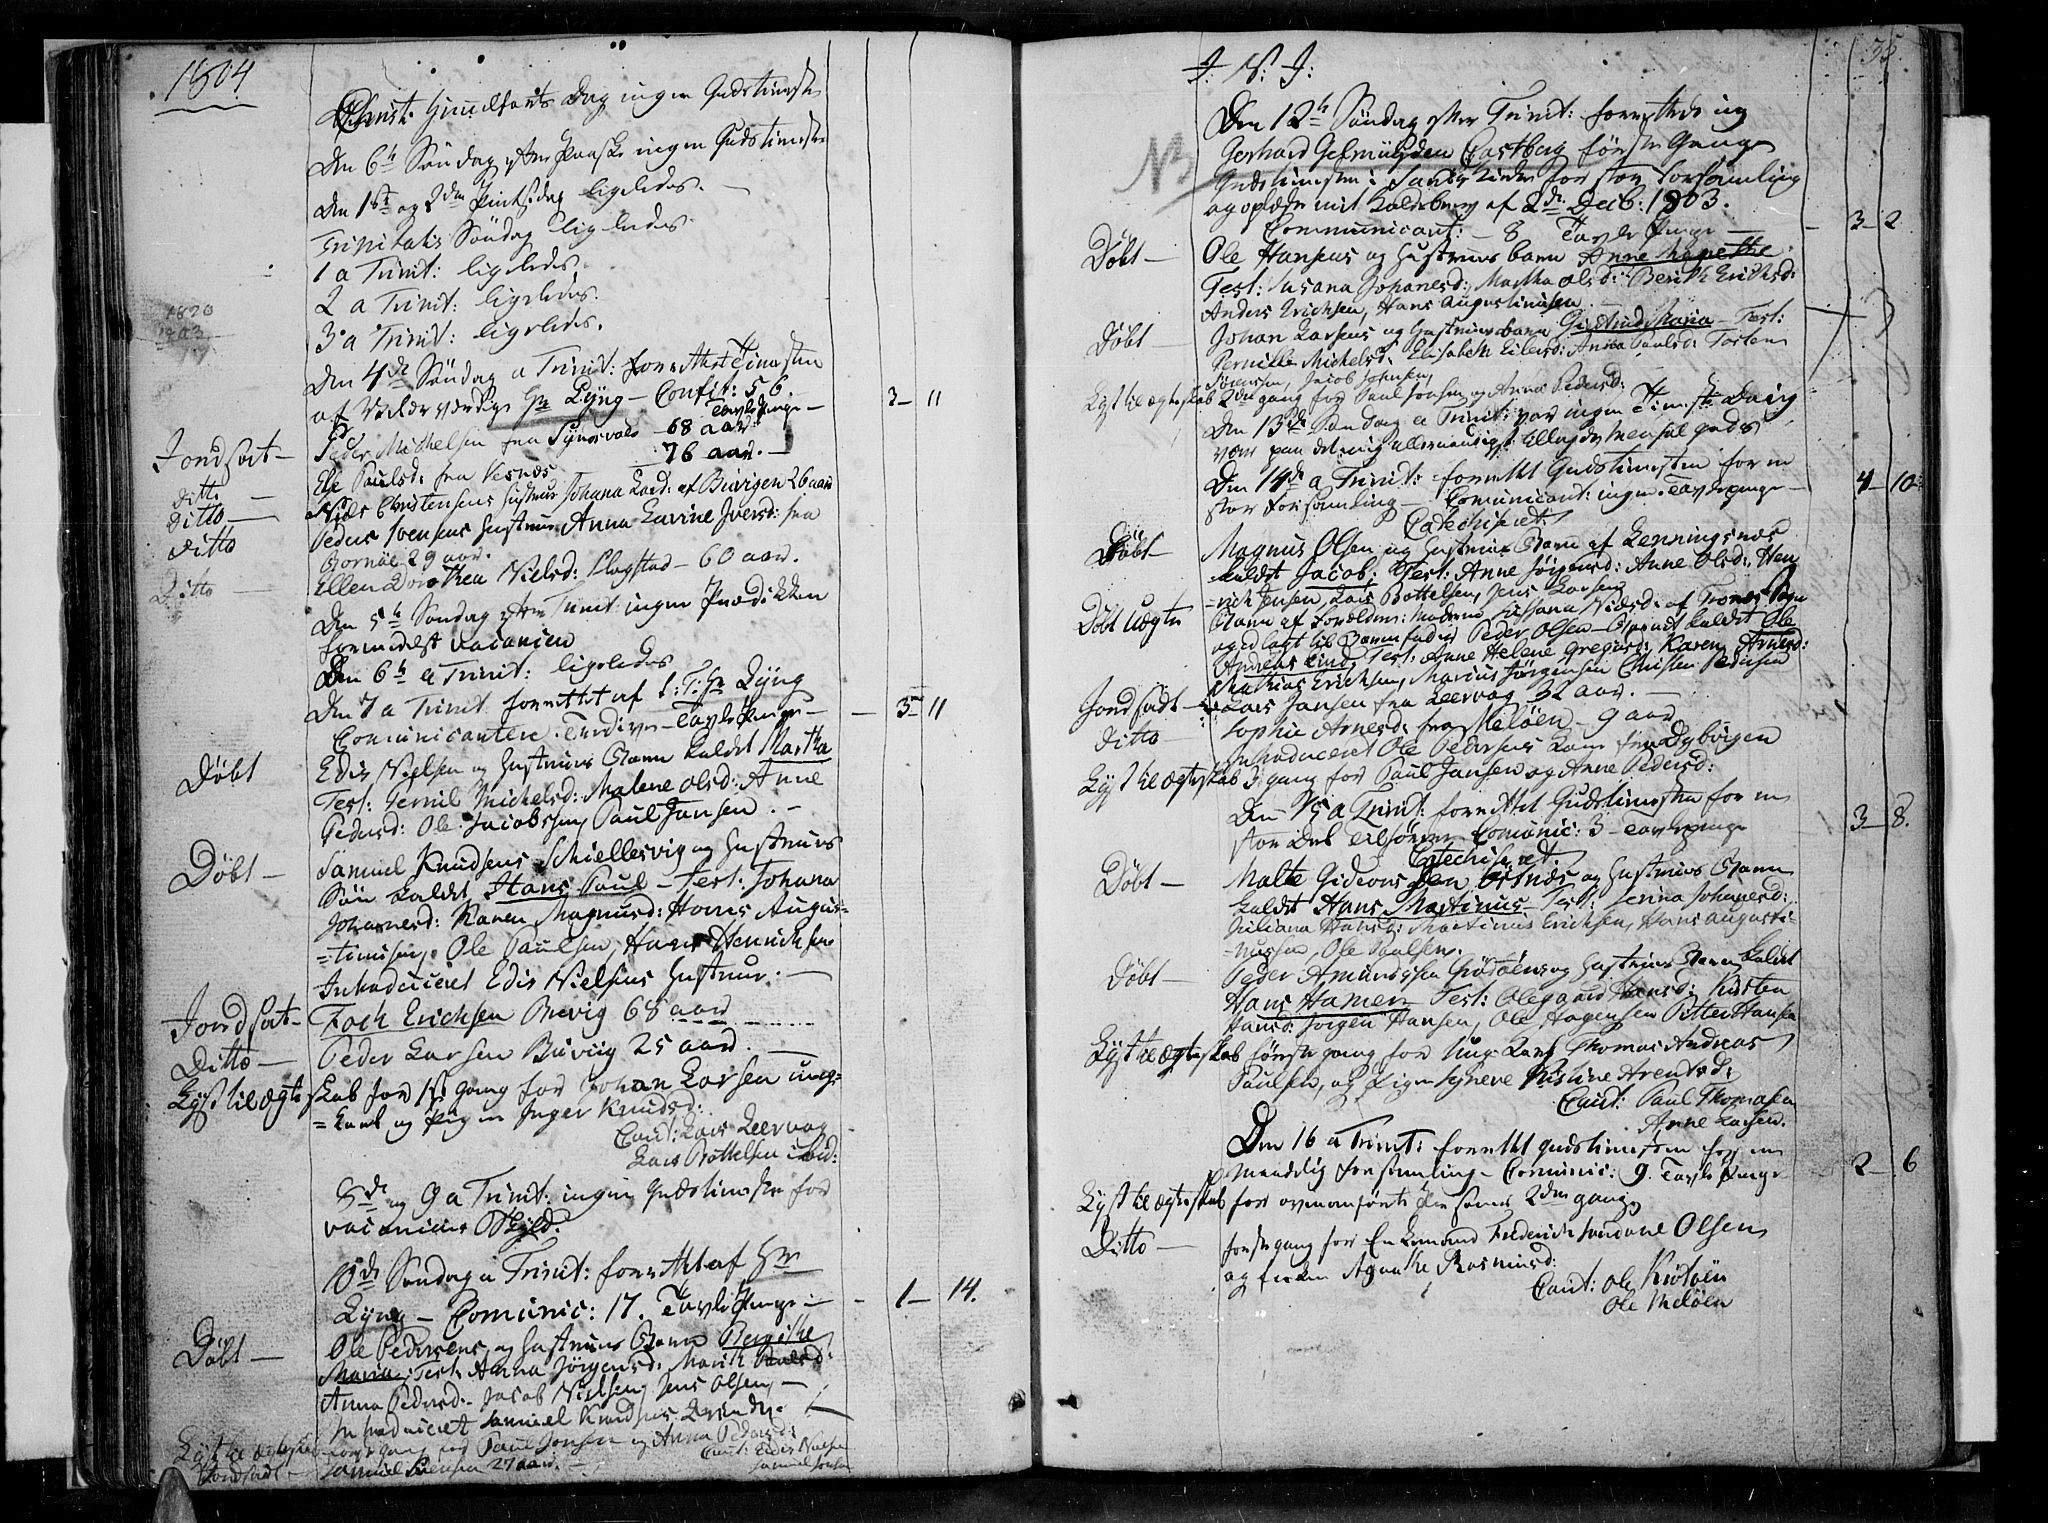 1804
Christi Himelfarts Dag ingen Gudstieneste
Den 6te Søndag efter Paaske ingen Gudstieneste
Den 1ste og 2den Pintsedag ligeledes.
Trinitatis Søndag ligeledes
1 a Trinit: ligeledes.
2 a Trinit: ligeledes.
3 a Trinit: ligeledes.
Den 4de Søndag a Trinit: forrettet Tienesten
af Velærværdige Hr Lyng — Confit: 56.
Tavle Penge — 3 — 11
Jordfæst — Peder Michelsen fra 68 aar
ditto — Else Paulsd: fra 76 aar. —
Ditto — Niels Christensens Hustrue Johana Lard: af Buvigen 26 aar
ditto Peder Svensens Hustrue Anna Lavine Iversd: fra
29 aar.
Ditto — Ellen Dorothea Nielsd: Flagstad — 60 aar.
Den 5te Søndag efter Trinit: ingen Prædikken
formedelst vacancen
Den 6te a Trinit: ligeledes
Den 7 a Trinit forrettet af S: T: Hr Lyng
Comunicantere Tredive — Tavle Penge — 3 — 11
Døbt Edis Nielsen og Hustrues Barn kaldet Martha
Test: Pernil Michelsd: Malene Olsd: Anne
Pedersd: Ole Jacobssen, Paul Jansen. —
Døbt — Samuel Knudsens Schiellesvig og Hustrues
Søn kaldet Hans Paul — Test: Johana
Johanesd: Karen Magnusd: Hans Augus=
=tinusen, Ole Paulsen, Hans Henrichsen
Introduceret Edis Nielsens Hustrue. —
Jordfæst — Foch Erichsen Brevig 68 aar
Ditto — Peder Larsen Buviig 25 aar. —
Lyst til Ægteskab for 1st gang for Johan Larsen ung=
=karl og Pigen Inger Knudsd:
Caut: Lars Leervaag
Lars Bottelsen ibid:
8de og 9 a Trinit: ingen Gudstieneste for
vacancens Skyld.
10de Søndag a Trinit: forrettet af Hr
Lyng — Comunic: 17. Tavle Penge — 1 — 14.
Døbt — Ole Pedersens og Hustrues Barn Berithe
Maria. Test: Anna Jørgensd: Marith Paulsd:
Anna Pedersd: Jacob Nielsen, Jens Olsen, —
Introduceret Samuel Knudsens Qvinde. —
Lyst til Ægteskab første gang for Paul Jonsen og Anna Pedersd:
Caut: Edis Nielsen
Samuel Jonsen
Jordfæst — Samuel Svensen 27 aar. —
35
I: N: I:
NB
Den 12te Søndag efter Trinit: forrettede ieg
Gerhard Gelmuyden Castberg første Gang
Gudstienesten i for stor Forsamling
og oplæste mit Kaldsbrev af 2de Decb: 1803.
Communicant: — 8 Tavle Penge — 3 — 2
Døbt — Ole Hansens og Hustrues barn Anne Margrethe
Test: Susana Johanesd:, Martha Olsd: Berith Erichsd:
Anders Erichsen, Hans Augustinusen
Døbt — Johan Larsens og Hustrues barn Maria — Test:
Pernille Michelsd: Elisabeth Eilersd: Anna Paulsd: Torsten
Sørensen, Jacob Johnsen,
Lyst til ægteskab 2den gang for Paul Jonsen og Anna Pedersd:
Den 13de Søndag a Trinit: var ingen Tieneste da ieg
var paa det mig allernaadigst tillagde Mensal gods
Den 14de a Trinit: forrettet Gudstienesten for en
stor Forsamling — Comunicant: ingen. Tavlepenge — 4 — 10
Catechiseret:
Døbt — Magnus Olsen og Hustrues Barn af Lenningsnæs
kaldet Jacob; Test: Anne Jørgensd: Anne Olsd: Hen
=rich Jensen, Lars Bottelsen, Jens Larsen
Døbt Uægte Barn af Forældrene: Moderen Susana Nielsd: af
udlagt til Barnefader Peder Olsen — Barnet kaldet Ole
Andreas Lind, Test: Anne Helene Gregersd: Karen Arnesd:
Mathias Erichsen, Marcus Jørgensen Christen Pedersen
Jordfæst — Lars Jansen fra Leervag 32 aar. —
Ditto — Sophie Arnesd: fra Meløen — 9 aar
Introduceret Ole Pedersens Kone fra Dybvigen
Lyst til ægteskab 3 gang for Paul Jansen og Anne Pedersd:
Den 15 a Trinit: forrettet Gudstienesten for en
stor Deel Tilhørere Comunic: 3 — Tavlepenge 3 — 8.
Catechiseret
Døbt — Malte Gideonssen og Hustrues Barn
kaldet Hans Martinus — Test: Johanesd:
Juliana Hansd: Martinus Erichsen, Hans Augusti-
nussen, Ole Paulsen.
Døbt — Peder Amundssen Grødøens og Hustrues Barn kaldet
Hans Hamen Test: Olegaard Hansd: Kirsten
Hansd: Jørgen Hansen, Ole Hagensen Pitter Hansen
Lyst til ægteskab første gang for Ung: Karl Thomas Andreas
Paulsen, og Pigen Synneve Kistine Arentsd:
Caut: Paul Thomasen
Arne Larsen.
Den 16 a Trinit: forrettet Gudstienesten for en
maadelig forsamling — Comunic: 9. Tavle Penge — 2 — 6
Lyst til ægteskab for ovenanførte Personer 2den gang
Ditto — første gang for Enkemand Frederich Olsen
og Enken Agnethe Rasmusd:
Caut: Ole
Ole Meløen